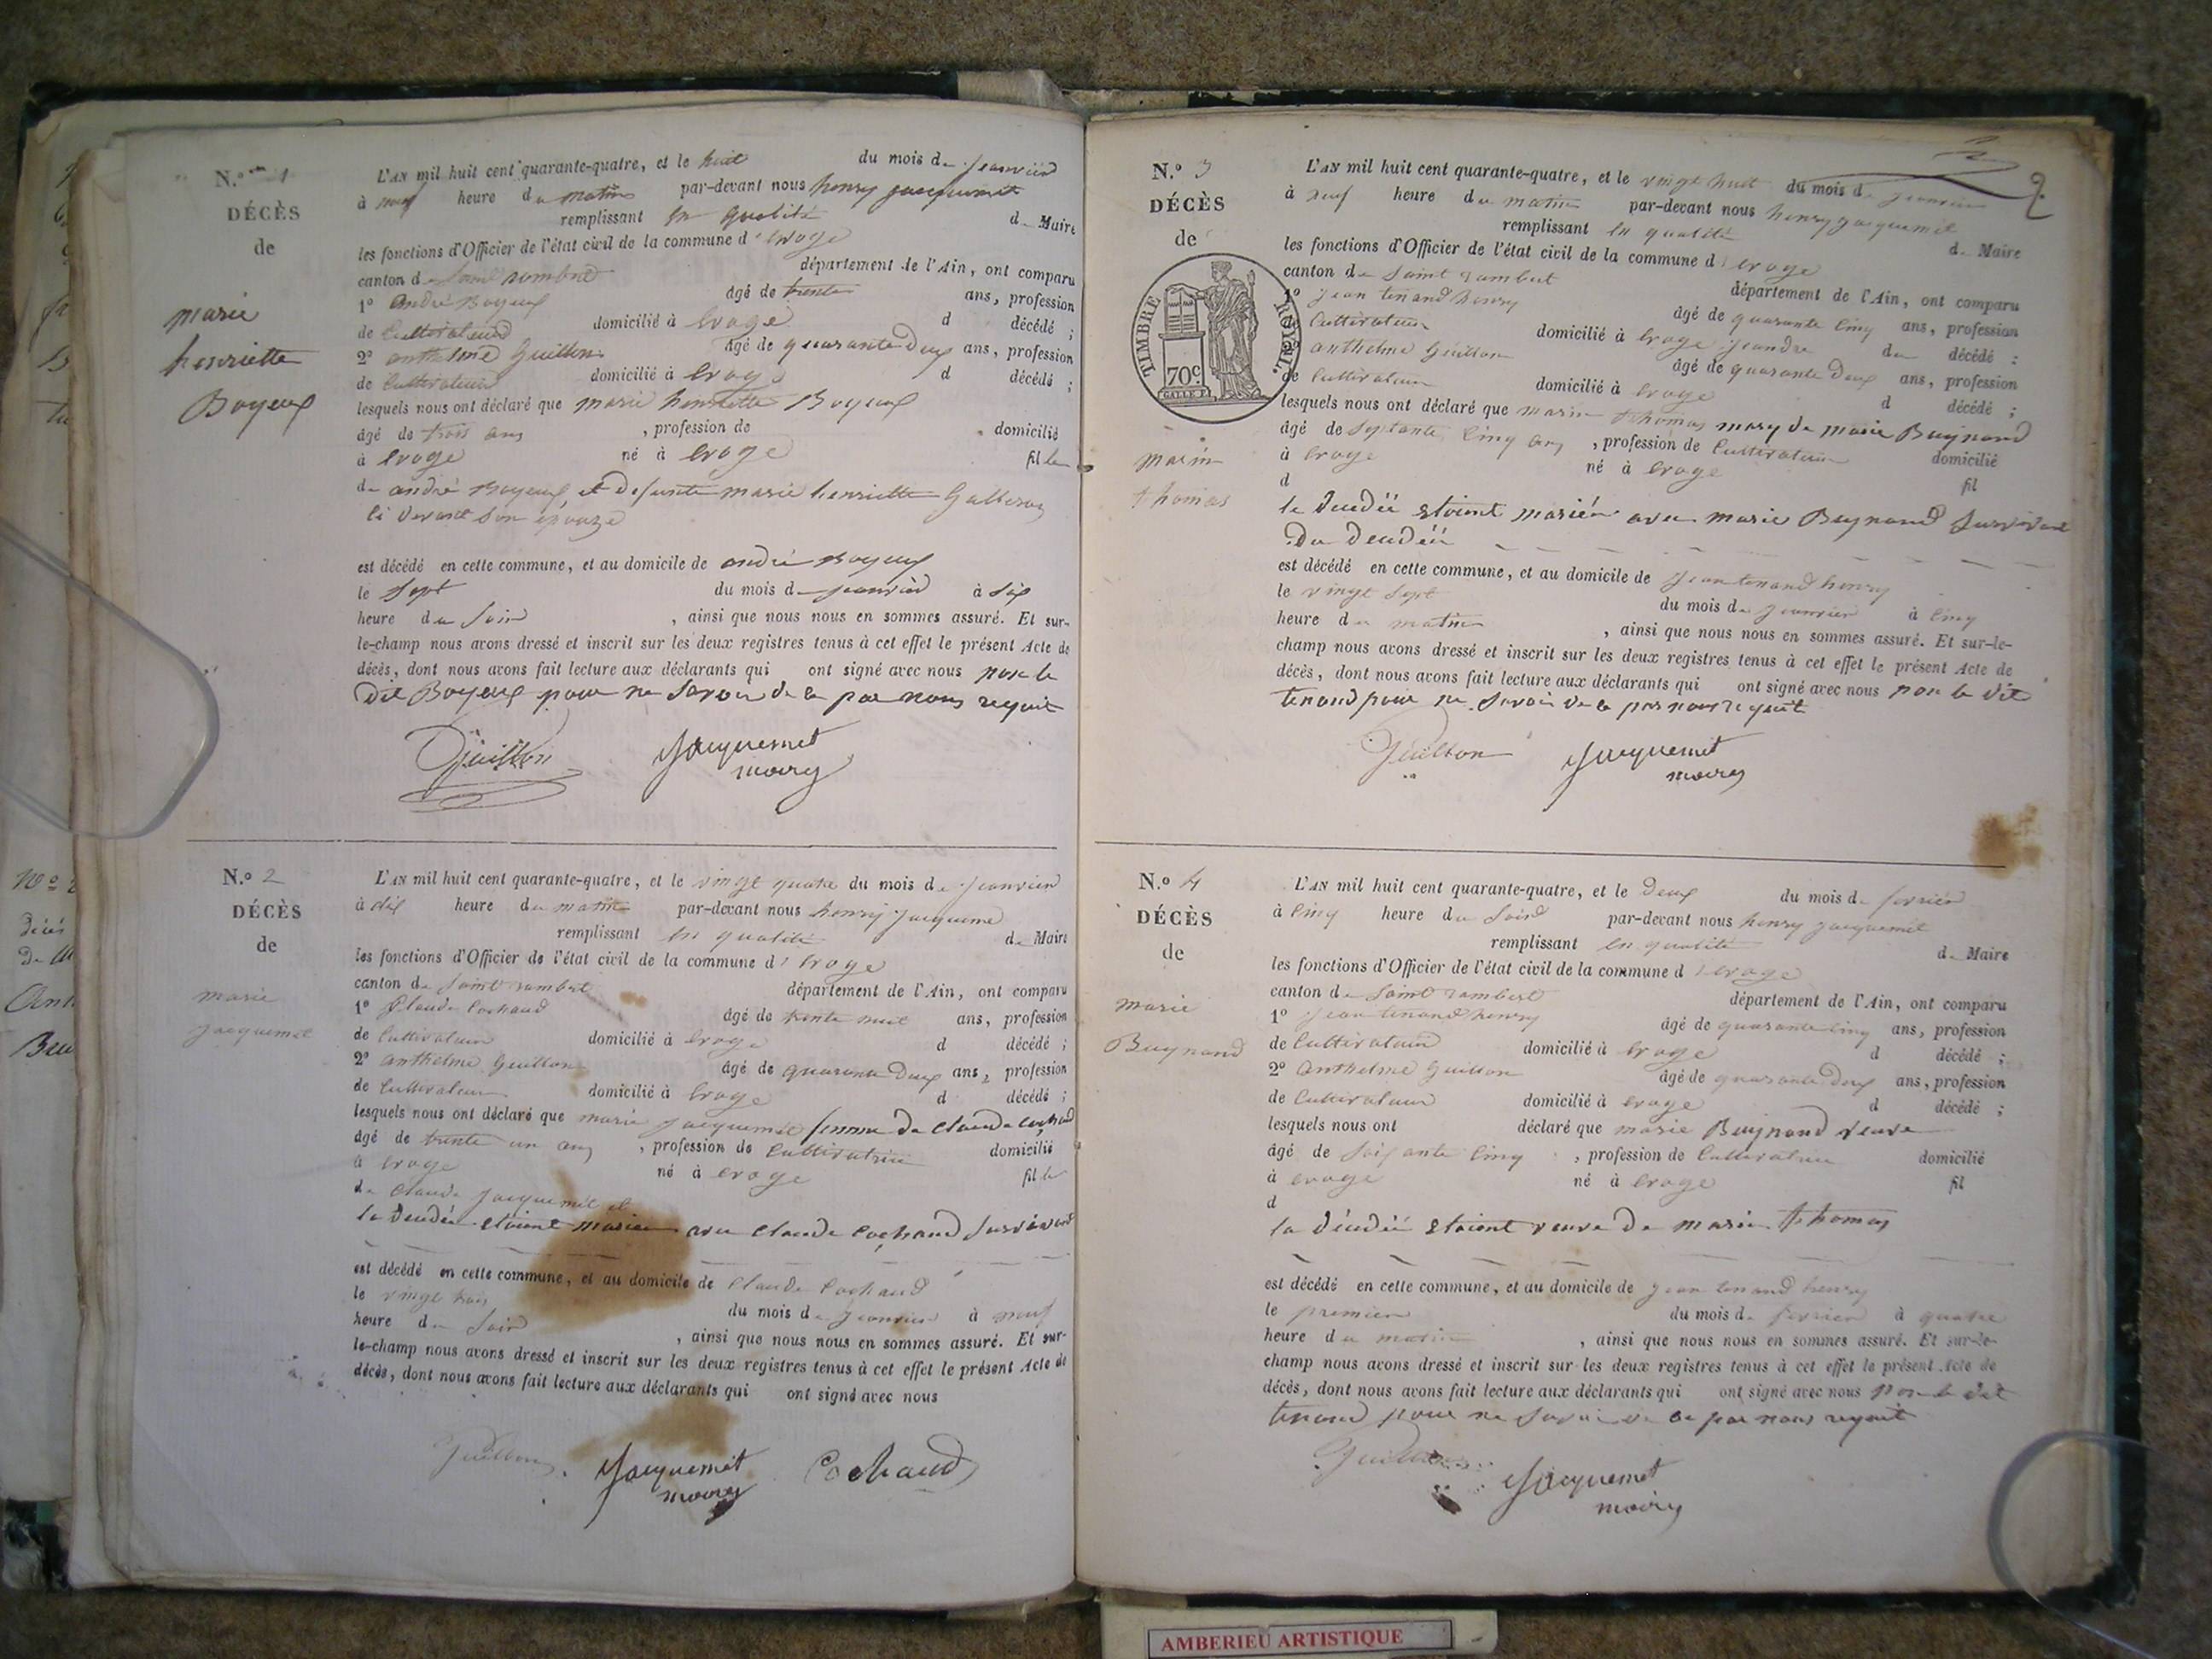 N.o 1
DÉCÈS
de
marie
henriette
Boyeux
L'AN mil huit cent quarante-quatre, et le huit du mois de janvier
à neuf heure du matin par-devant nous henry jacquemet
remplissant en qualité de Maire
les fonctions d'Officier de l'état civil de la commune d'evoge
canton de saint rambert département de l'Ain, ont comparu
1o andré Boyeux âgé de trente ans, profession
de Cultivateur domicilié à evoge d décédé ;
2o anthelme Guillon âgé de quarante deux ans, profession
de Cultivateur domicilié à evoge d décédé ;
lesquels nous ont déclaré que marie henriette Boyeux
âgé de trois ans , profession de domicilié
à evoge né à evoge fille
de andré Boyeux et defunte marie henriette
ci devant son epouze
est décédé en cette commune, et au domicile de andré Boyeux
le sept du mois de janvier à six
heure du soir , ainsi que nous nous en sommes assuré. Et sur-
le-champ nous avons dressé et inscrit sur les deux registres tenus à cet effet le présent Acte de
décès, dont nous avons fait lecture aux déclarants qui ont signé avec nous non le
dit Boyeux pour ne savoir de ce par nous requit
Guillon Jacquemet
mairy
N.o 2
DÉCÈS
de
marie
jacquemet
L'AN mil huit cent quarante-quatre, et le vingt quatre du mois de janvier
à dix heure du matin par-devant nous henry jacquemet
remplissant en qualité de Maire
les fonctions d'Officier de l'état civil de la commune d'evoge
canton de saint rambert département de l'Ain, ont comparu
1o Claude Cochaud âgé de trente huit ans, profession
de Cultivateur domicilié à evoge d décédé ;
2o anthelme Guillon âgé de quarante deux ans, profession
de Cultivateur domicilié à evoge d décédé ;
lesquels nous ont déclaré que marie jacquemet femme de claude cochaud
âgé de trente un ans , profession de Cultivatrice domicilié
à evoge né à evoge fille
de claude jacquemet et
la décedée etoient mariée avec claude cochaud survivant
est décédé en cette commune, et au domicile de Claude Cochaud
le vingt trois du mois de janvier à neuf
heure du soir , ainsi que nous nous en sommes assuré. Et sur-
le-champ nous avons dressé et inscrit sur les deux registres tenus à cet effet le présent Acte de
décès, dont nous avons fait lecture aux déclarants qui ont signé avec nous
Guillon Jacquemet Cochaud
mairy
N.o 3
DÉCÈS
de
TIMBRE ROYAL.
70c
GALLE F.
marin
thomas
2
L'AN mil huit cent quarante-quatre, et le vingt huit du mois de janvier
à neuf heure du matin par-devant nous henry jacquemet
remplissant en qualité de Maire
les fonctions d'Officier de l'état civil de la commune d'evoge
canton de saint rambert département de l'Ain, ont comparu
1o jean tenand henry âgé de quarante cinq ans, profession
de Cultivateur domicilié à evoge jeandre du décédé ;
anthelme Guillon âgé de quarante deux ans, profession
de Cultivateur domicilié à evoge d décédé ;
lesquels nous ont déclaré que marin thomas mary de marie Buynand
âgé de septante cinq ans , profession de Cultivateur domicilié
à evoge né à evoge fil
d
le decedéé etoient mariér avec marie Buynand survivant
du decedéé
est décédé en cette commune, et au domicile de jean tenand henry
le vingt sept du mois de janvier à cinq
heure du matin , ainsi que nous nous en sommes assuré. Et sur-le-
champ nous avons dressé et inscrit sur les deux registres tenus à cet effet le présent Acte de
décès, dont nous avons fait lecture aux déclarants qui ont signé avec nous non le dit
tenand pour ne savoir de ce par nous requit
Guillon Jacquemet
mairy
N.o 4
DÉCÈS
de
marie
Buynand
L'AN mil huit cent quarante-quatre, et le deux du mois de fevrier
à cinq heure du soir par-devant nous henry jacquemet
remplissant en qualité de Maire
les fonctions d'Officier de l'état civil de la commune d'evoge
canton de saint rambert département de l'Ain, ont comparu
1o jean tenand henry âgé de quarante cinq ans, profession
de Cultivateur domicilié à evoge d décédé ;
2o anthelme Guillon âgé de quarante deux ans, profession
de Cultivateur domicilié à evoge d décédé ;
lesquels nous ont déclaré que marie Buynand veuve
âgé de soixante cinq , profession de Cultivatrice domicilié
à evoge né à evoge fil
d
la décedéé etoient veuve de marin thomas
est décédé en cette commune, et au domicile de jean tenand henry
le premier du mois de fevrier à quatre
heure du matin , ainsi que nous nous en sommes assuré. Et sur-le-
champ nous avons dressé et inscrit sur les deux registres tenus à cet effet le présent Acte de
décès, dont nous avons fait lecture aux déclarants qui ont signé avec nous non le dit
tenand pour ne savoir de ce par nous requit
Guillon Jacquemet
mairy
AMBERIEU ARTISTIQUE